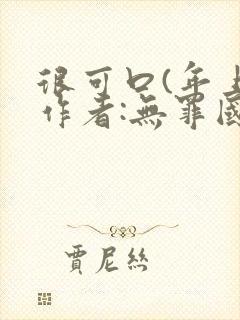 很可口(年上
作者:無罪國
賈尼絲